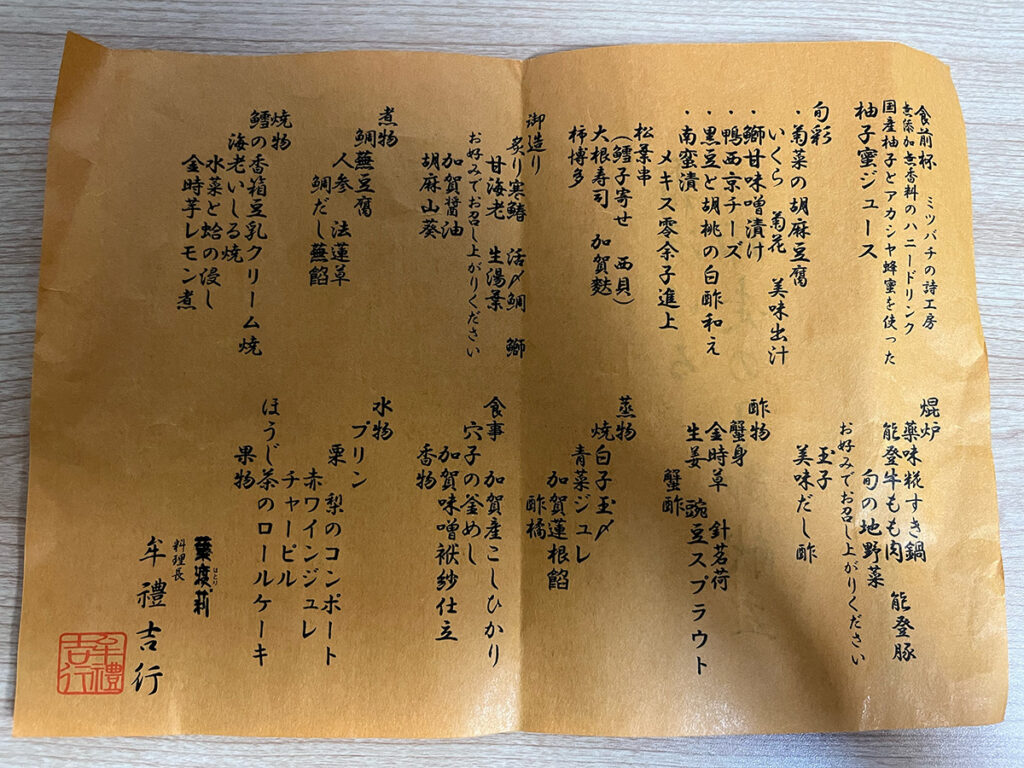 食前杯 ミツバチの詩工房
無添加無香料のハニードリンク
国産柚子とアカシヤ蜂蜜を使った
柚子蜜ジュース
旬彩
・菊菜の胡麻豆腐
いくら 菊花 美味出汁
・鰤甘味噌漬け
・鴨西京チーズ
・黒豆と胡桃の白酢和え
・南蛮漬
メキス零余子進上
松葉串
(鱈子寄せ 西貝)
大根寿司 加賀麩
柿博多
御造り
炙り寒鰆 活〆鯛 鰤
甘海老 生湯葉
お好みでお召し上がりください
加賀醤油
胡麻山葵
煮物
鯛蕪豆腐
人参 法蓮草
鯛だし蕪餡
焼物
鱈の香箱豆乳クリーム焼
海老いしる焼
水菜と蛤の浸し
金時芋レモン煮
焜炉
薬味糀すき鍋
能登牛もも肉 能登豚
旬の地野菜
お好みでお召し上がりください
玉子
美味だし酢
酢物
蟹身
金時草 針茗荷
生姜 豌豆スプラウト
蟹酢
蒸物
焼白子玉〆
青菜ジュレ
加賀蓮根餡
酢橘
食事 加賀産こしひかり
穴子の釜めし
加賀味噌袱紗仕立
香物
水物
プリン
栗 梨のコンポート
赤ワインジュレ
チャービル
ほうじ茶のロールケーキ
果物
葉渡莉
はとり
料理長
牟禮吉行
牟禮
吉行